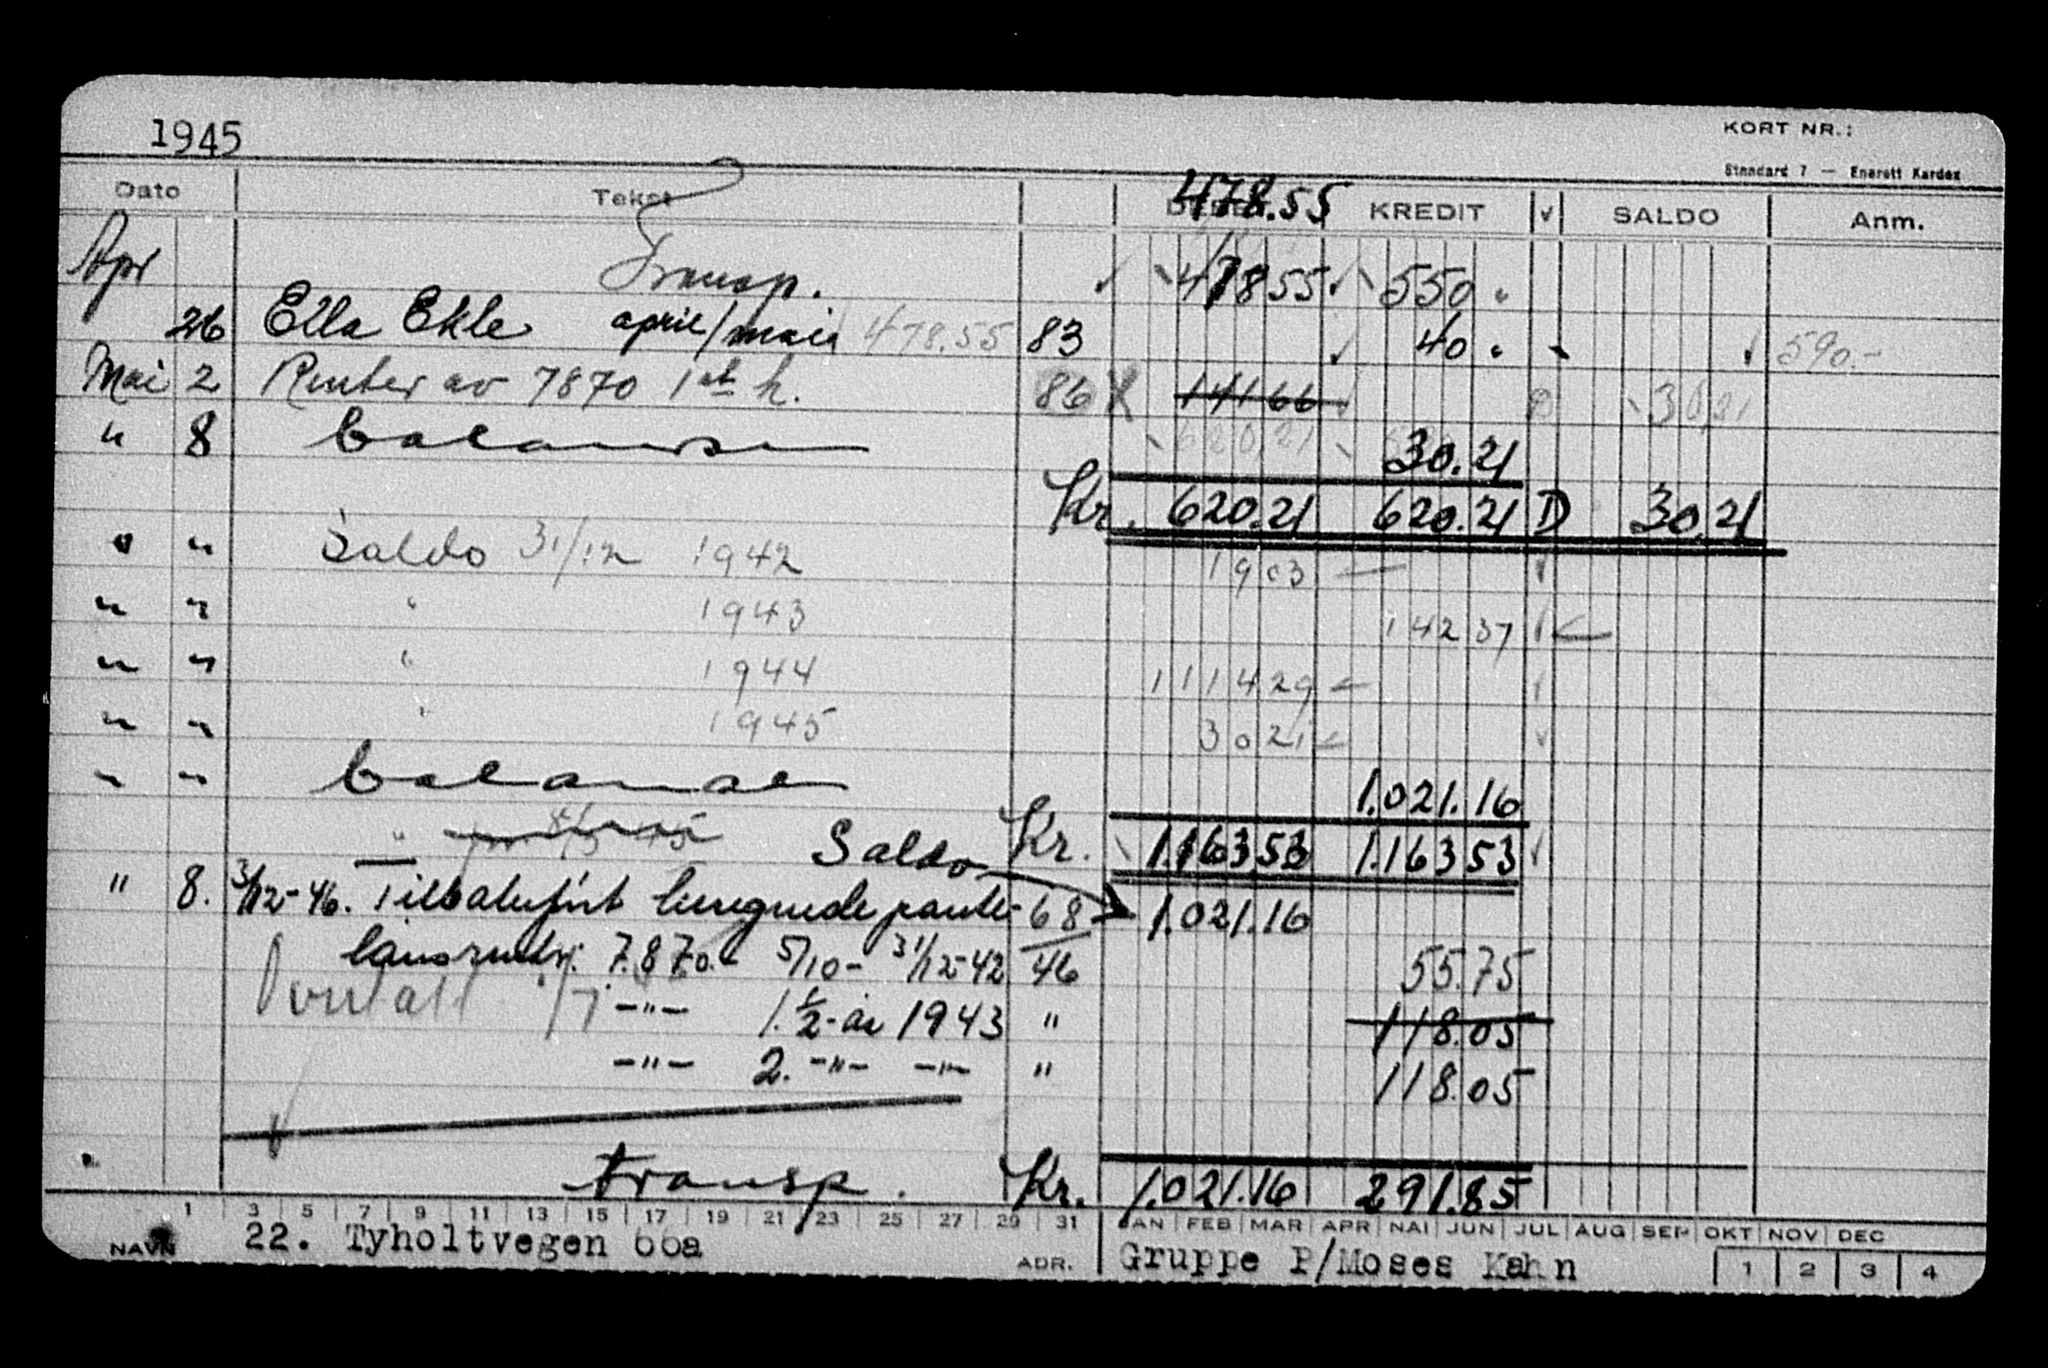 1945
KORT NR.:
Standard 7 — Enerett Kardex
Dato Tekst 478.55 KREDIT √ SALDO Anm.
Apr Transp. 478 55 550 .
26 Ella Ekle april/mai 478.55 83 40 . 590.-
Mai 2 Renter av 7870 1st h. 86 141 66 30,21
" 8 balanse 620,21 30.21
Kr. 620.21 620.21 D 30,21
" " Saldo 31/12 1942 19 03
" " " 1943 142 37
" " " 1944 1114 29
" " " 1945 30 21
" " balanse 1.021.16
" Saldo Kr. 1.163 53 1.163 53
" 8. 3/12-46. Tilbakeført beregnede pante- 68 1.021.16
lånsrenter: 7.870.- 5/10 - 31/12-42 46 55.75
1/7 -"- 1. ½-år 1943 " 118.05
-"- 2. -"- -"- " 118.05
transp. Kr. 1.021.16 291.85
1 3 5 7 9 11 13 15 17 19 21 23 25 27 29 31 JAN FEB MAR APR MAI JUN JUL AUG SEP OKT NOV DEC
NAVN 22. Tyholtvegen 66a ADR. Gruppe P/Moses Kahn 1 2 3 4